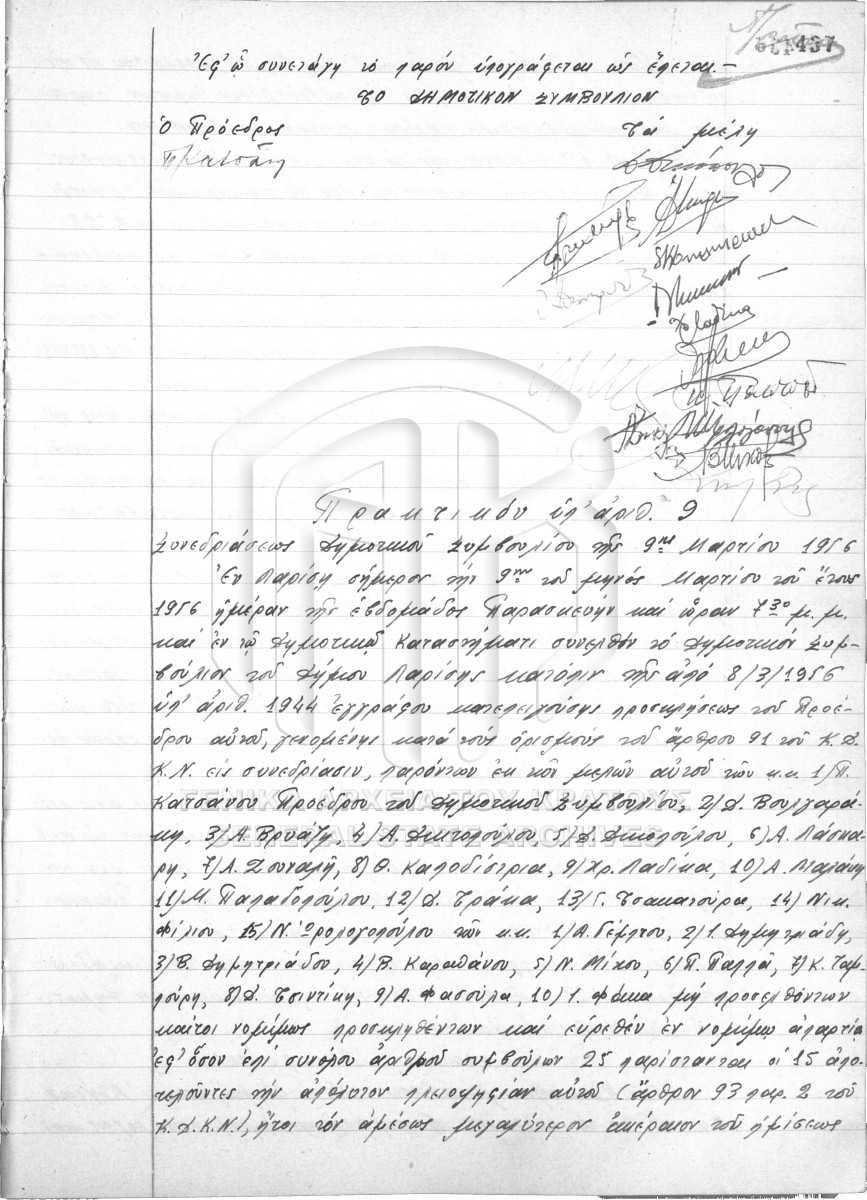 437
Ἐφ' ᾧ συνετάγη τό παρόν ὑπογράφεται ὡς ἕπεται.-
ΤΟ ΔΗΜΟΤΙΚΟΝ ΣΥΜΒΟΥΛΙΟΝ
Ὁ Πρόεδρος Τά μέλη
Πρακτικόν ὑπ' ἀριθ. 9
Συνεδριάσεως Δημοτικοῦ Συμβουλίου τῆς 9ης Μαρτίου 1956
Ἐν Λαρίσῃ σήμερον τήν 9ην τοῦ μηνός Μαρτίου τοῦ ἔτους
1956 ἡμέραν τῆς ἑβδομάδος Παρασκευήν καί ὥραν 7 30 μ.μ.
καί ἐν τῷ Δημοτικῷ Καταστήματι συνελθόν τό Δημοτικόν Συμ-
βούλιον τοῦ Δήμου Λαρίσης κατόπιν τῆς ἀπό 8/3/1956
ὑπ' ἀριθ. 1944 ἐγγράφου κατεπειγούσης προσκλήσεως τοῦ Προέ-
δρου αὐτοῦ, γενομένης κατά τούς ὁρισμούς τοῦ ἄρθρου 91 τοῦ Κ.Δ.
Κ.Ν. εἰς συνεδρίασιν, παρόντων ἐκ τῶν μελῶν αὐτοῦ τῶν κ.κ. 1/Π.
Κατσάνου Προέδρου τοῦ Δημοτικοῦ Συμβουλίου, 2/Δ. Βουλγαρά-
κη, 3/Α. Βρυάζη, 4/Α. 5/Δ. 6/Α. Λάσκα-
ρη, 7/Α. Ζουναλῆ, 8/Θ. Καποδίστρια, 9/Χρ. Λαδίκα, 10/Α.
11/Μ. Παπαδοπούλου, 12/Δ. Τράκα, 13/Γ. Τσακατούρα, 14/Νικ.
Φίλιου, 15/Ν. Ὡρολογοπούλου τῶν κ.κ. 1/Α. Δέμπου, 2/Ι. Δημητριάδη,
3/Β. Δημητριάδου, 4/Β. Καραθάνου, 5/Ν. Μίχου, 6/Π. Παππᾶ, 7/Κ. Ταμ-
πούρη, 8/Δ. Τσιντίκη, 9/Α. Φασούλα, 10/Ι. Φάκα μή προσελθόντων
καίτοι νομίμως προσκληθέντων καί εὑρεθέν ἐν νομίμῳ ἀπαρτίᾳ
ἐφ' ὅσον ἐπί συνόλου ἀριθμοῦ συμβούλων 25 παρίστανται οἱ 15 ἀπο-
τελοῦντες τήν ἀπόλυτον πλειοψηφίαν αὐτοῦ (ἄρθρον 93 παρ. 2 τοῦ
Κ.Δ.Κ.Ν.), ἤτοι τόν ἀμέσως μεγαλύτερον ἀκέραιον τοῦ ἡμίσεως
ΓΕΝΙΚΑ ΑΡΧΕΙΑ ΤΟΥ ΚΡΑΤΟΥΣ
GENERAL STATE ARCHIVES